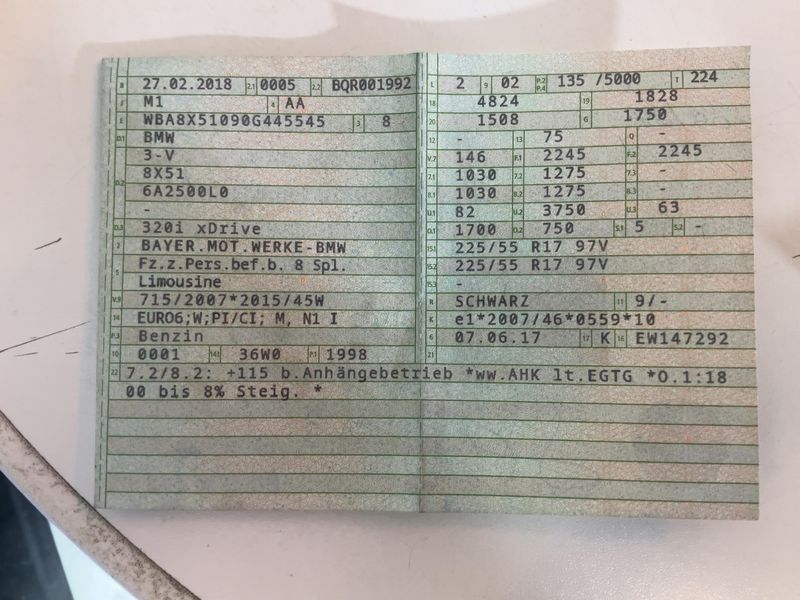 B 27.02.2018 2.1 0005 2.2 BQR001992 L 2 9 02 P.2 P.4 135 /5000 T 224
J M1 4 AA 18 4824 19 1828
E WBA8X51090G445545 3 8 20 1508 G 1750
D.1 BMW 12 - 13 75 Q -
3-V V.7 146 F.1 2245 F.2 2245
8X51 7.1 1030 7.2 1275 7.3 -
D.2 6A2500L0 8.1 1030 8.2 1275 8.3 -
- U.1 82 U.2 3750 U.3 63
D.3 320i xDrive O.1 1700 O.2 750 S.1 5 S.2 -
2 BAYER.MOT.WERKE-BMW 15.1 225/55 R17 97V
5 Fz.z.Pers.bef.b. 8 Spl. 15.2 225/55 R17 97V
Limousine 15.3 -
V.9 715/2007*2015/45W R SCHWARZ 11 9/-
14 EURO6;W;PI/CI; M, N1 I K e1*2007/46*0559*10
P.3 Benzin 6 07.06.17 17 K 16 EW147292
10 0001 14.1 36W0 P.1 1998 21
22 7.2/8.2: +115 b.Anhängebetrieb *ww.AHK lt.EGTG *O.1:18
00 bis 8% Steig. *